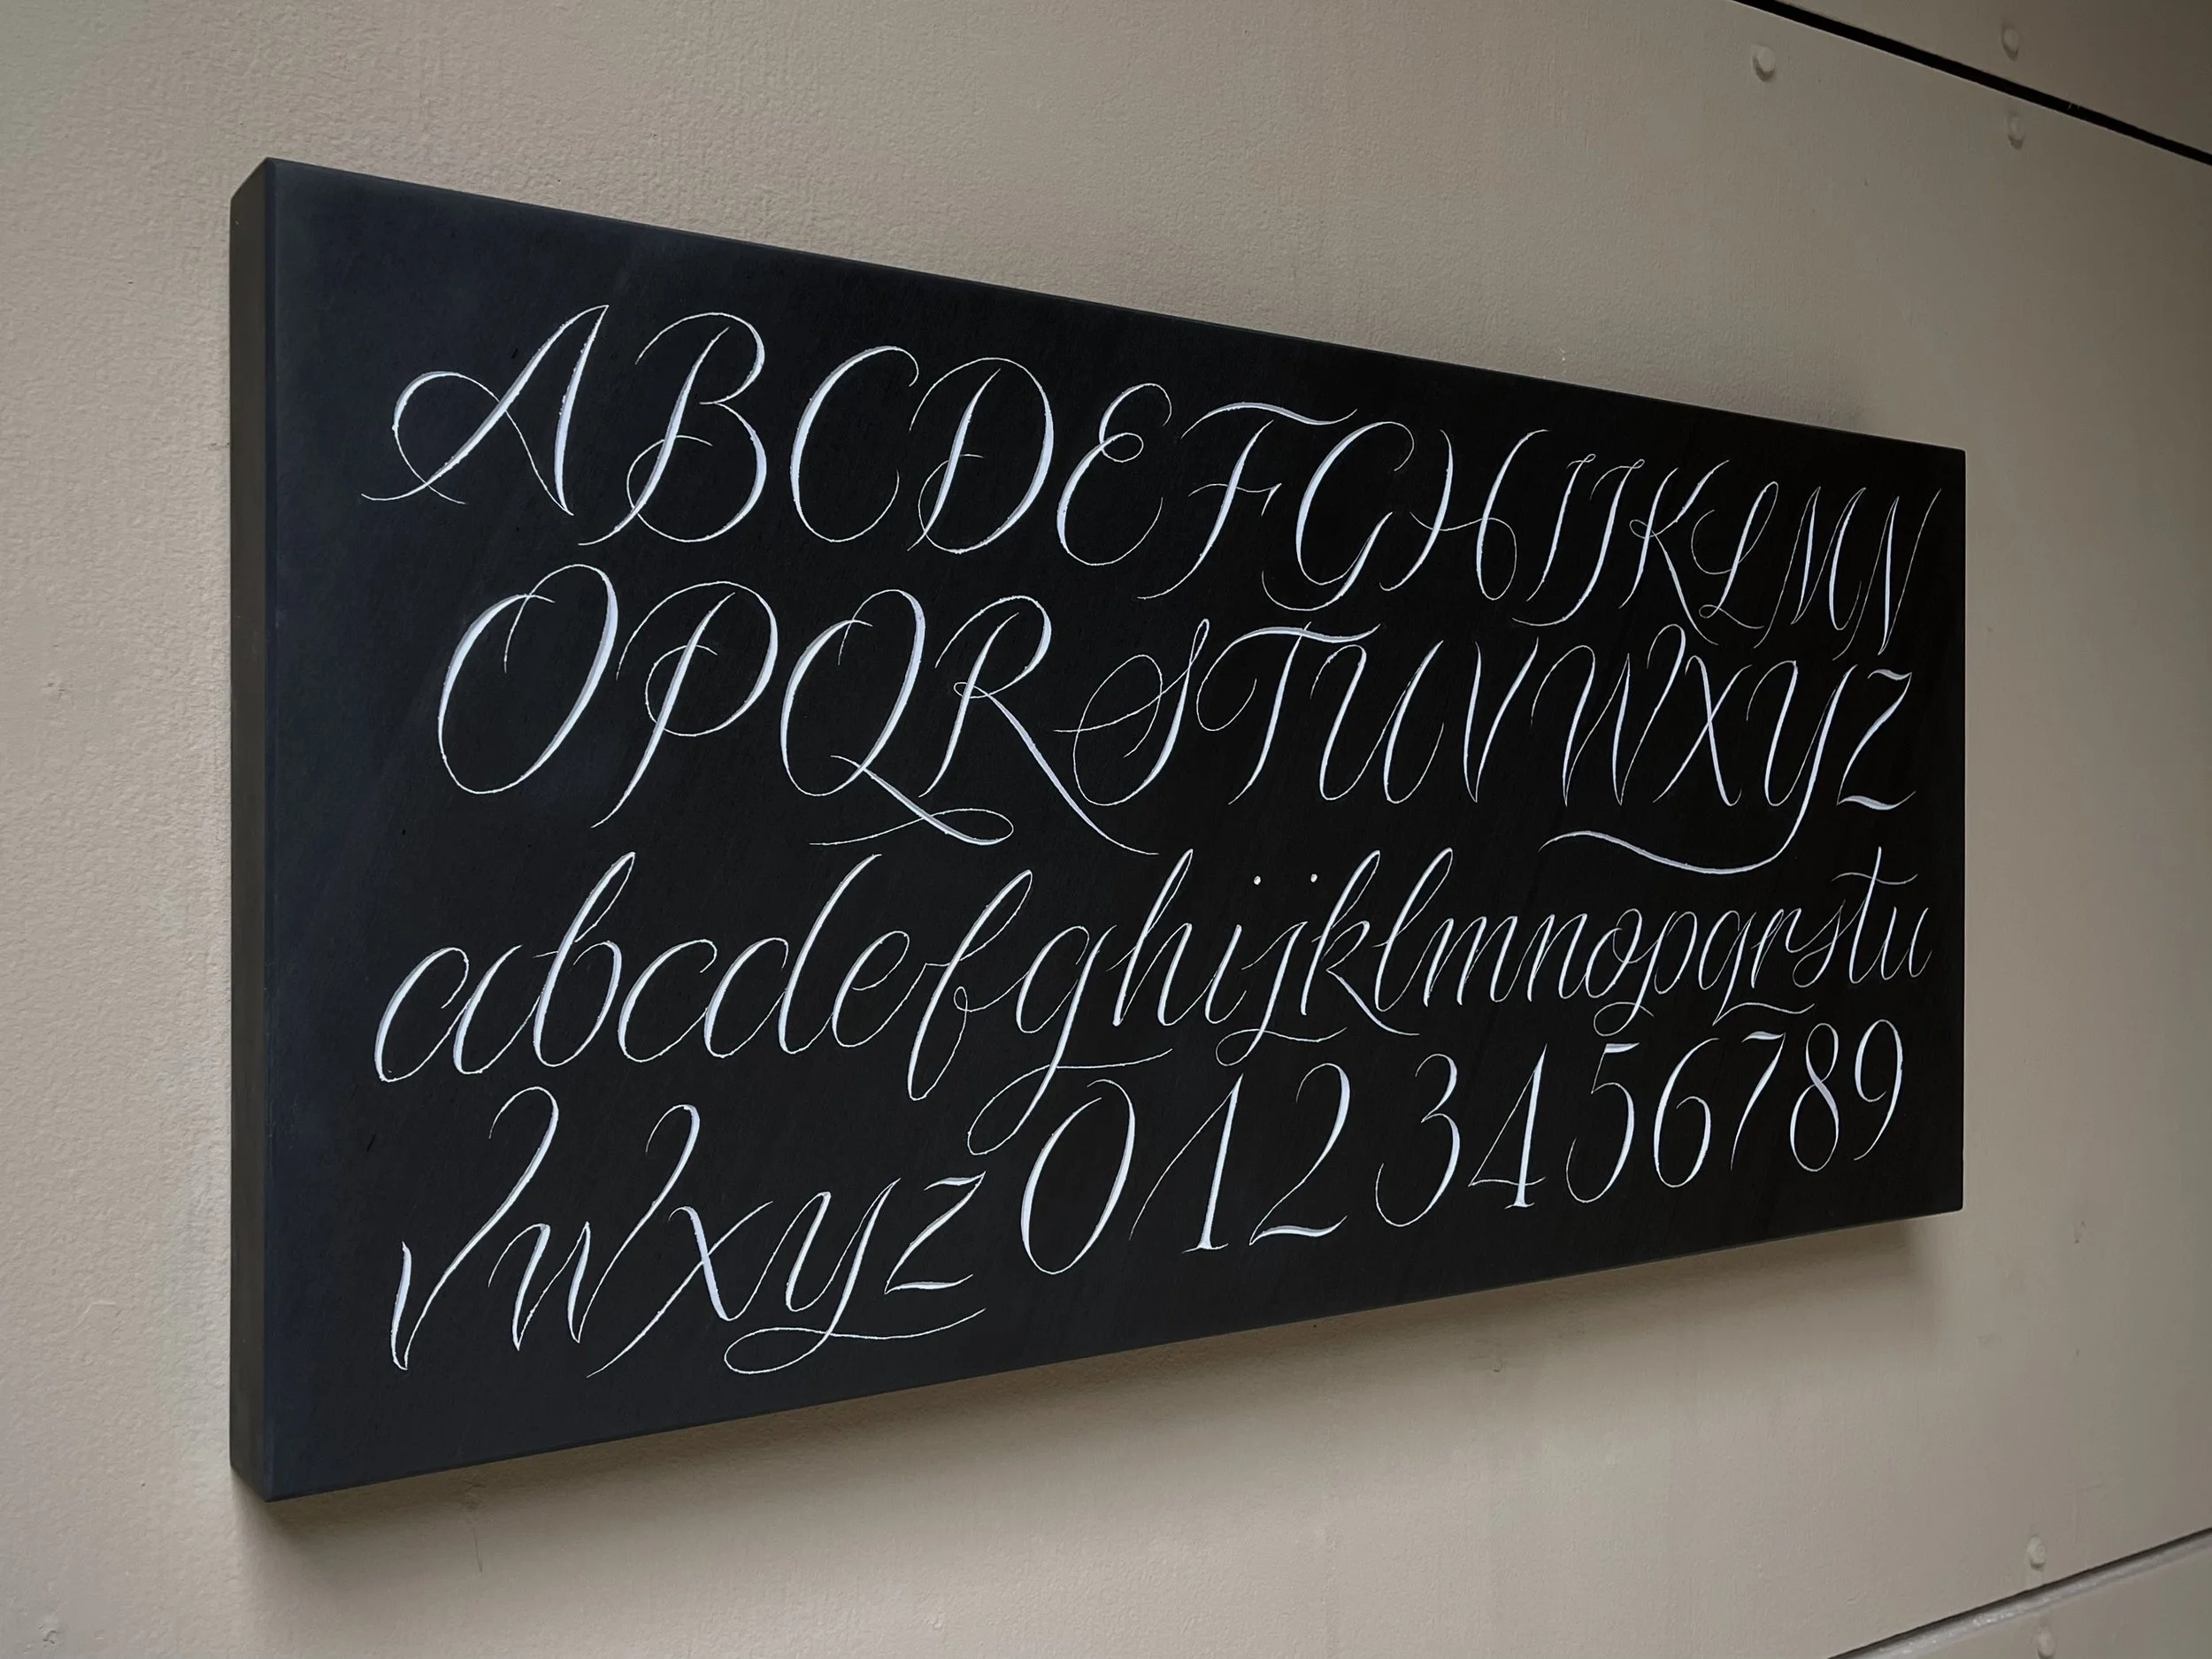 ABCDEFGHIJKLMN
OPQRSTUVWXYZ
abcdefghijklmnopqrstu
vwxyz 0123456789